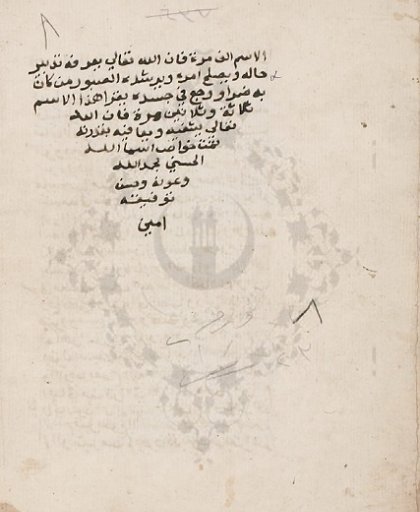 الاسم الف مرة فان الله تعالي يعرفه تدبير
حاله ويصلح امره ويرشده الصبور من كان
به ضرا ووجع في جسده يقرا هذا الاسم
ثلاثة وثلاثين مرة فان الله
تعالي يشفيه ويعافيه بقدرته
تمت خواص اسما الله
الحسني بحمد الله
وعونه وحسن
توفيقه
امين